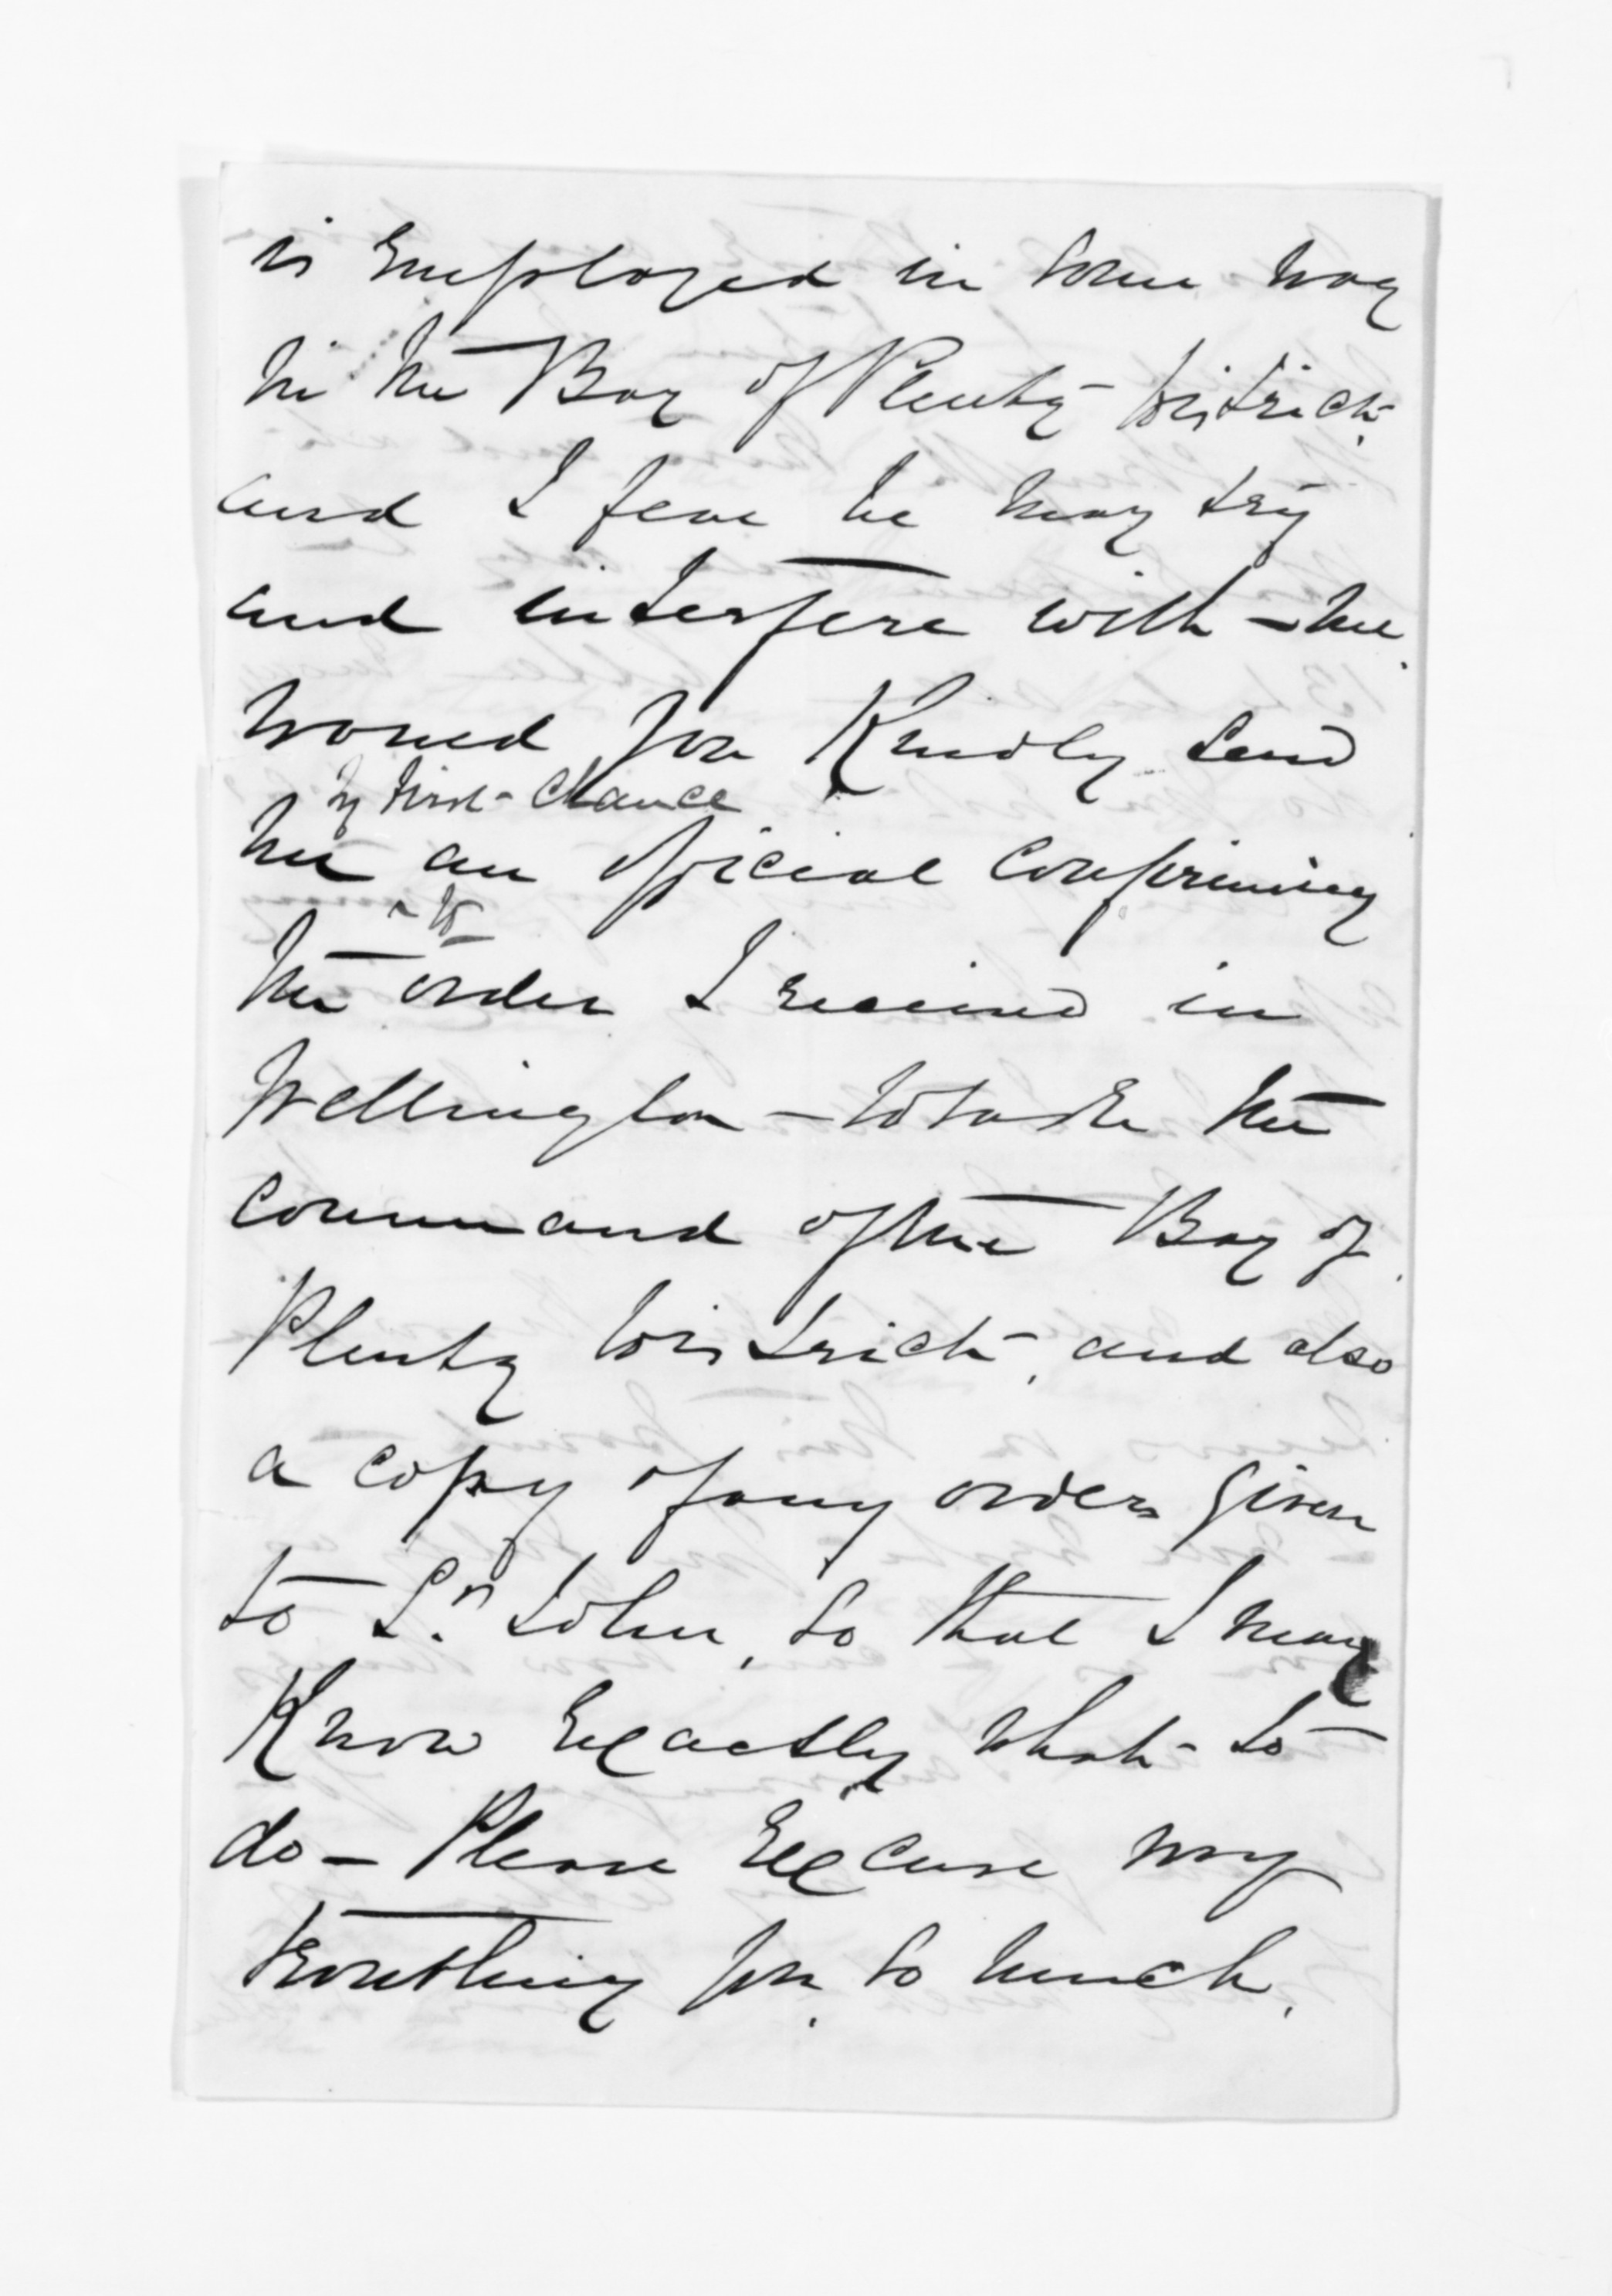 is employed in some way
in the Bay of Plenty district,
and I fear he may try
and interfere with me.
would you Kindly send
by first chance
me an official confirming
the order I received in
Wellington - to take the
command of the Bay of
Plenty District, and also
a copy of any orders given
to St. John, so that I may
Know exactly what to
do - Please excuse my
troubling you so much.